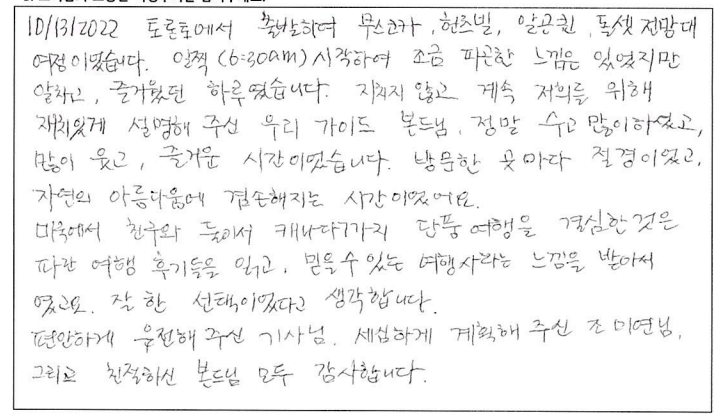 10/13/2022 토론토에서 출발하여 무스코카, 헌츠빌, 알곤퀸, 돌셋 전망대
여정이었습니다. 일찍 (6:30am) 시작하여 조금 피곤한 느낌은 있었지만
알차고, 즐거웠던 하루였습니다. 지치지 않고 계속 저희를 위해
재치있게 설명해 주신 우리 가이드 본드님, 정말 수고 많이하셨고,
많이 웃고, 즐거운 시간이었습니다. 방문한 곳마다 절경이었고,
자연의 아름다움에 겸손해지는 시간이었어요.
미국에서 친구와 둘이서 캐나다까지 단풍여행을 결심한것은
파란 여행 후기들을 읽고, 믿을 수 있는 여행사라는 느낌을 받아서
였고요. 잘 한 선택이었다고 생각합니다.
편안하게 운전해 주신 기사님, 세심하게 계획해 주신 조미연님,
그리고 친절하신 본드님 모두 감사합니다.